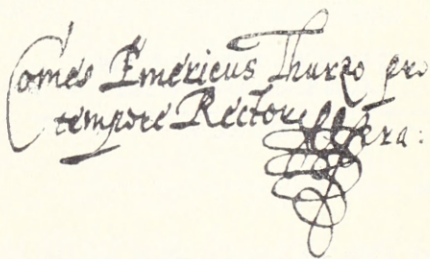 Comes Emericus Thurzo pro
tempore Rector